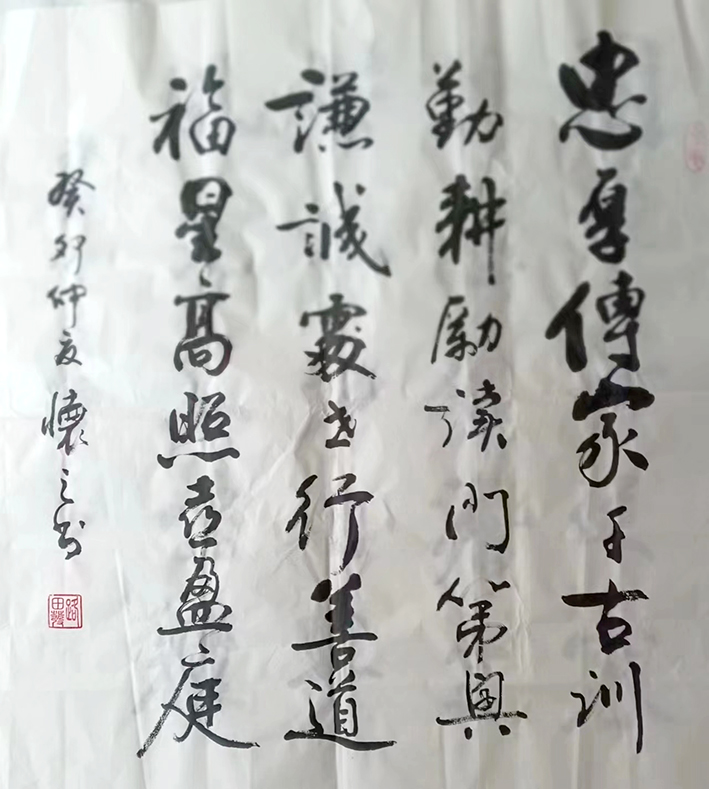 忠厚傳家千古訓
勤耕勵讀門第興
謙誠處世行善道
福星高照喜盈庭
癸卯仲夏懷之書